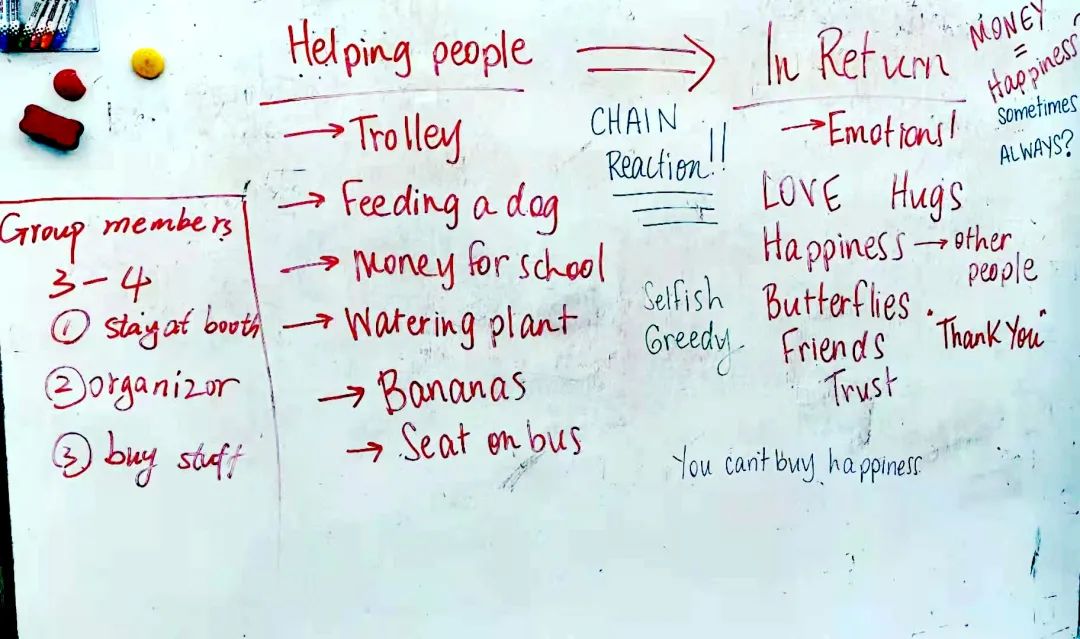 Helping people
→ Trolley
→ Feeding a dog
→ Money for school
→ Watering plant
→ Bananas
→ Seat on bus
CHAIN
Reaction!!
Selfish
Greedy
In Return
→ Emotions!
LOVE Hugs
Happiness → other
people
Butterflies
Friends
Trust
"Thank You"
MONEY
=
Happiness
sometimes
ALWAYS?
You can't buy happiness
Group members
3-4
① stay at booth
② organizor
③ buy stuff